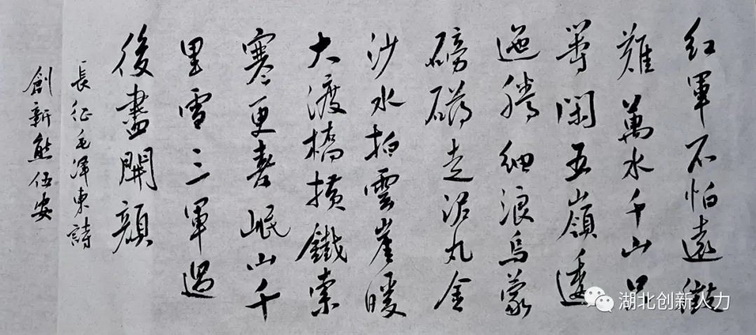 紅軍不怕遠徵
難萬水千山只
等閑五嶺逶
迤騰細浪烏蒙
磅礴走泥丸金
沙水拍雲崖暖
大渡橋横鐵索
寒更喜岷山千
里雪三軍過
後盡開顔
長征毛澤東詩
創新熊伍安
湖北创新人力